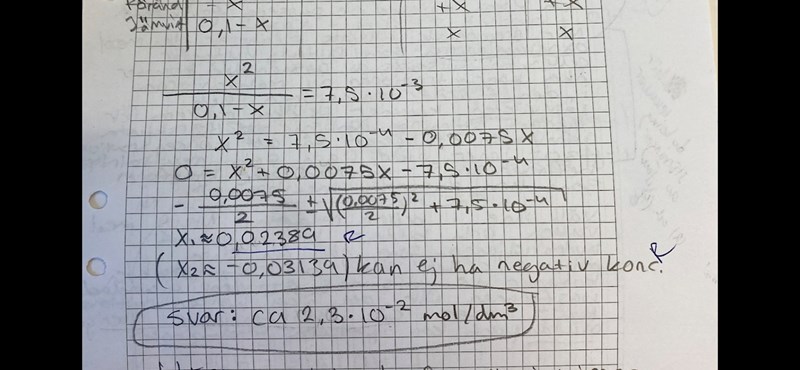 Föränd - x +x +x
Jämvikt 0,1-x x x
x² / (0,1-x) = 7,5·10⁻³
x² = 7,5·10⁻⁴ - 0,0075x
0 = x² + 0,0075x - 7,5·10⁻⁴
- 0,0075/2 ± √((0,0075/2)² + 7,5·10⁻⁴)
x₁ ≈ 0,02389 R
(x₂ ≈ -0,03139) kan ej ha negativ konc. R
Svar: ca 2,3·10⁻² mol/dm³